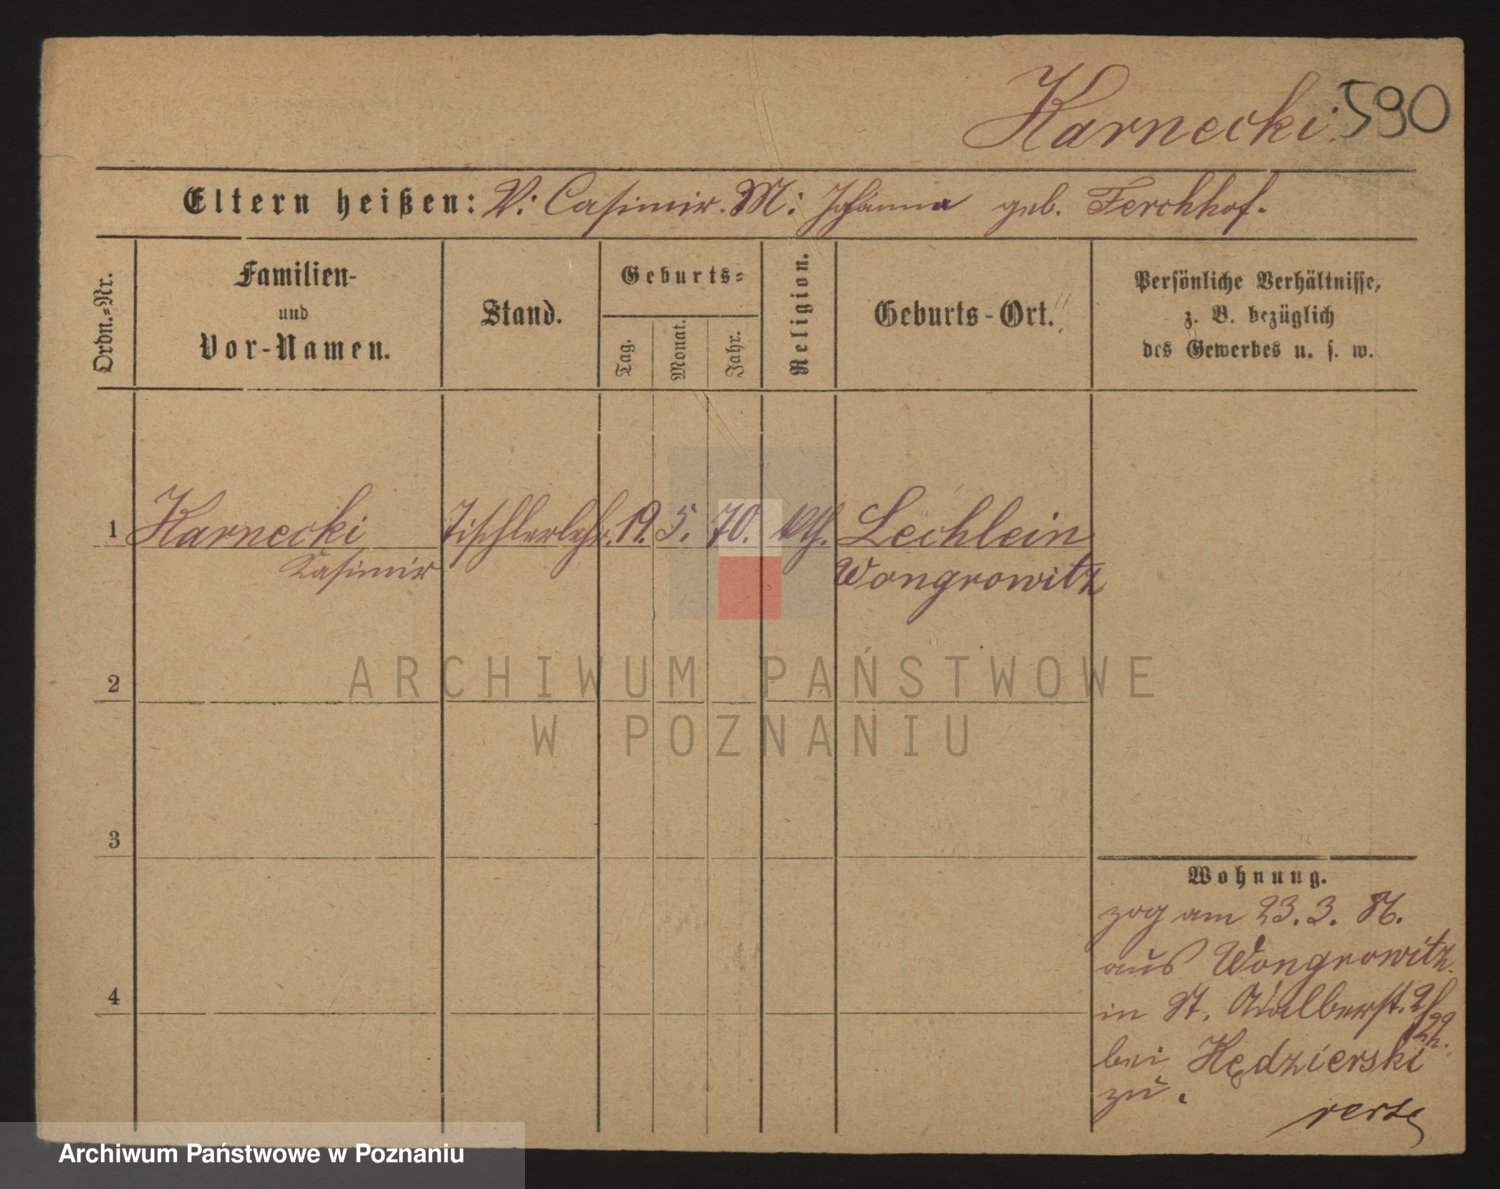 Karnecki. 590
Eltern heißen: V: Casimir. M: Johanna geb. Ferchhof.
Ordn.=Nr.
Familien-
und
Vor-Namen.
Stand.
Geburts=
Tag.
Monat.
Jahr.
Religion.
Geburts-Ort.
Persönliche Verhältnisse,
z. B. bezüglich
des Gewerbes u. s. w.
1 Karnecki Tischlerlehr. 19. 5. 70. kth. Lechlein
Kasimir Wongrowitz
2
3
4
Wohnung.
zog am 23.3.86.
aus Wongrowitz.
in St. Adalberst. 2/
bei Kędzierski
zu.
verte
ARCHIWUM PAŃSTWOWE
W POZNANIU
Archiwum Państwowe w Poznaniu